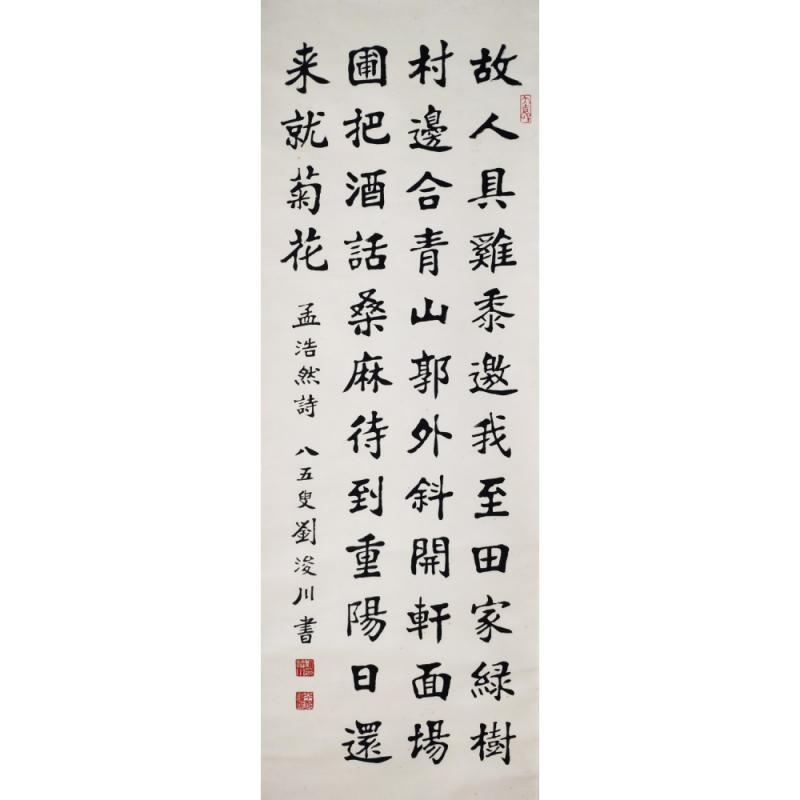 故人具雞黍邀我至田家綠樹
村邊合青山郭外斜開軒面場
圃把酒話桑麻待到重陽日還
来就菊花
孟浩然詩 八五叟劉浚川書